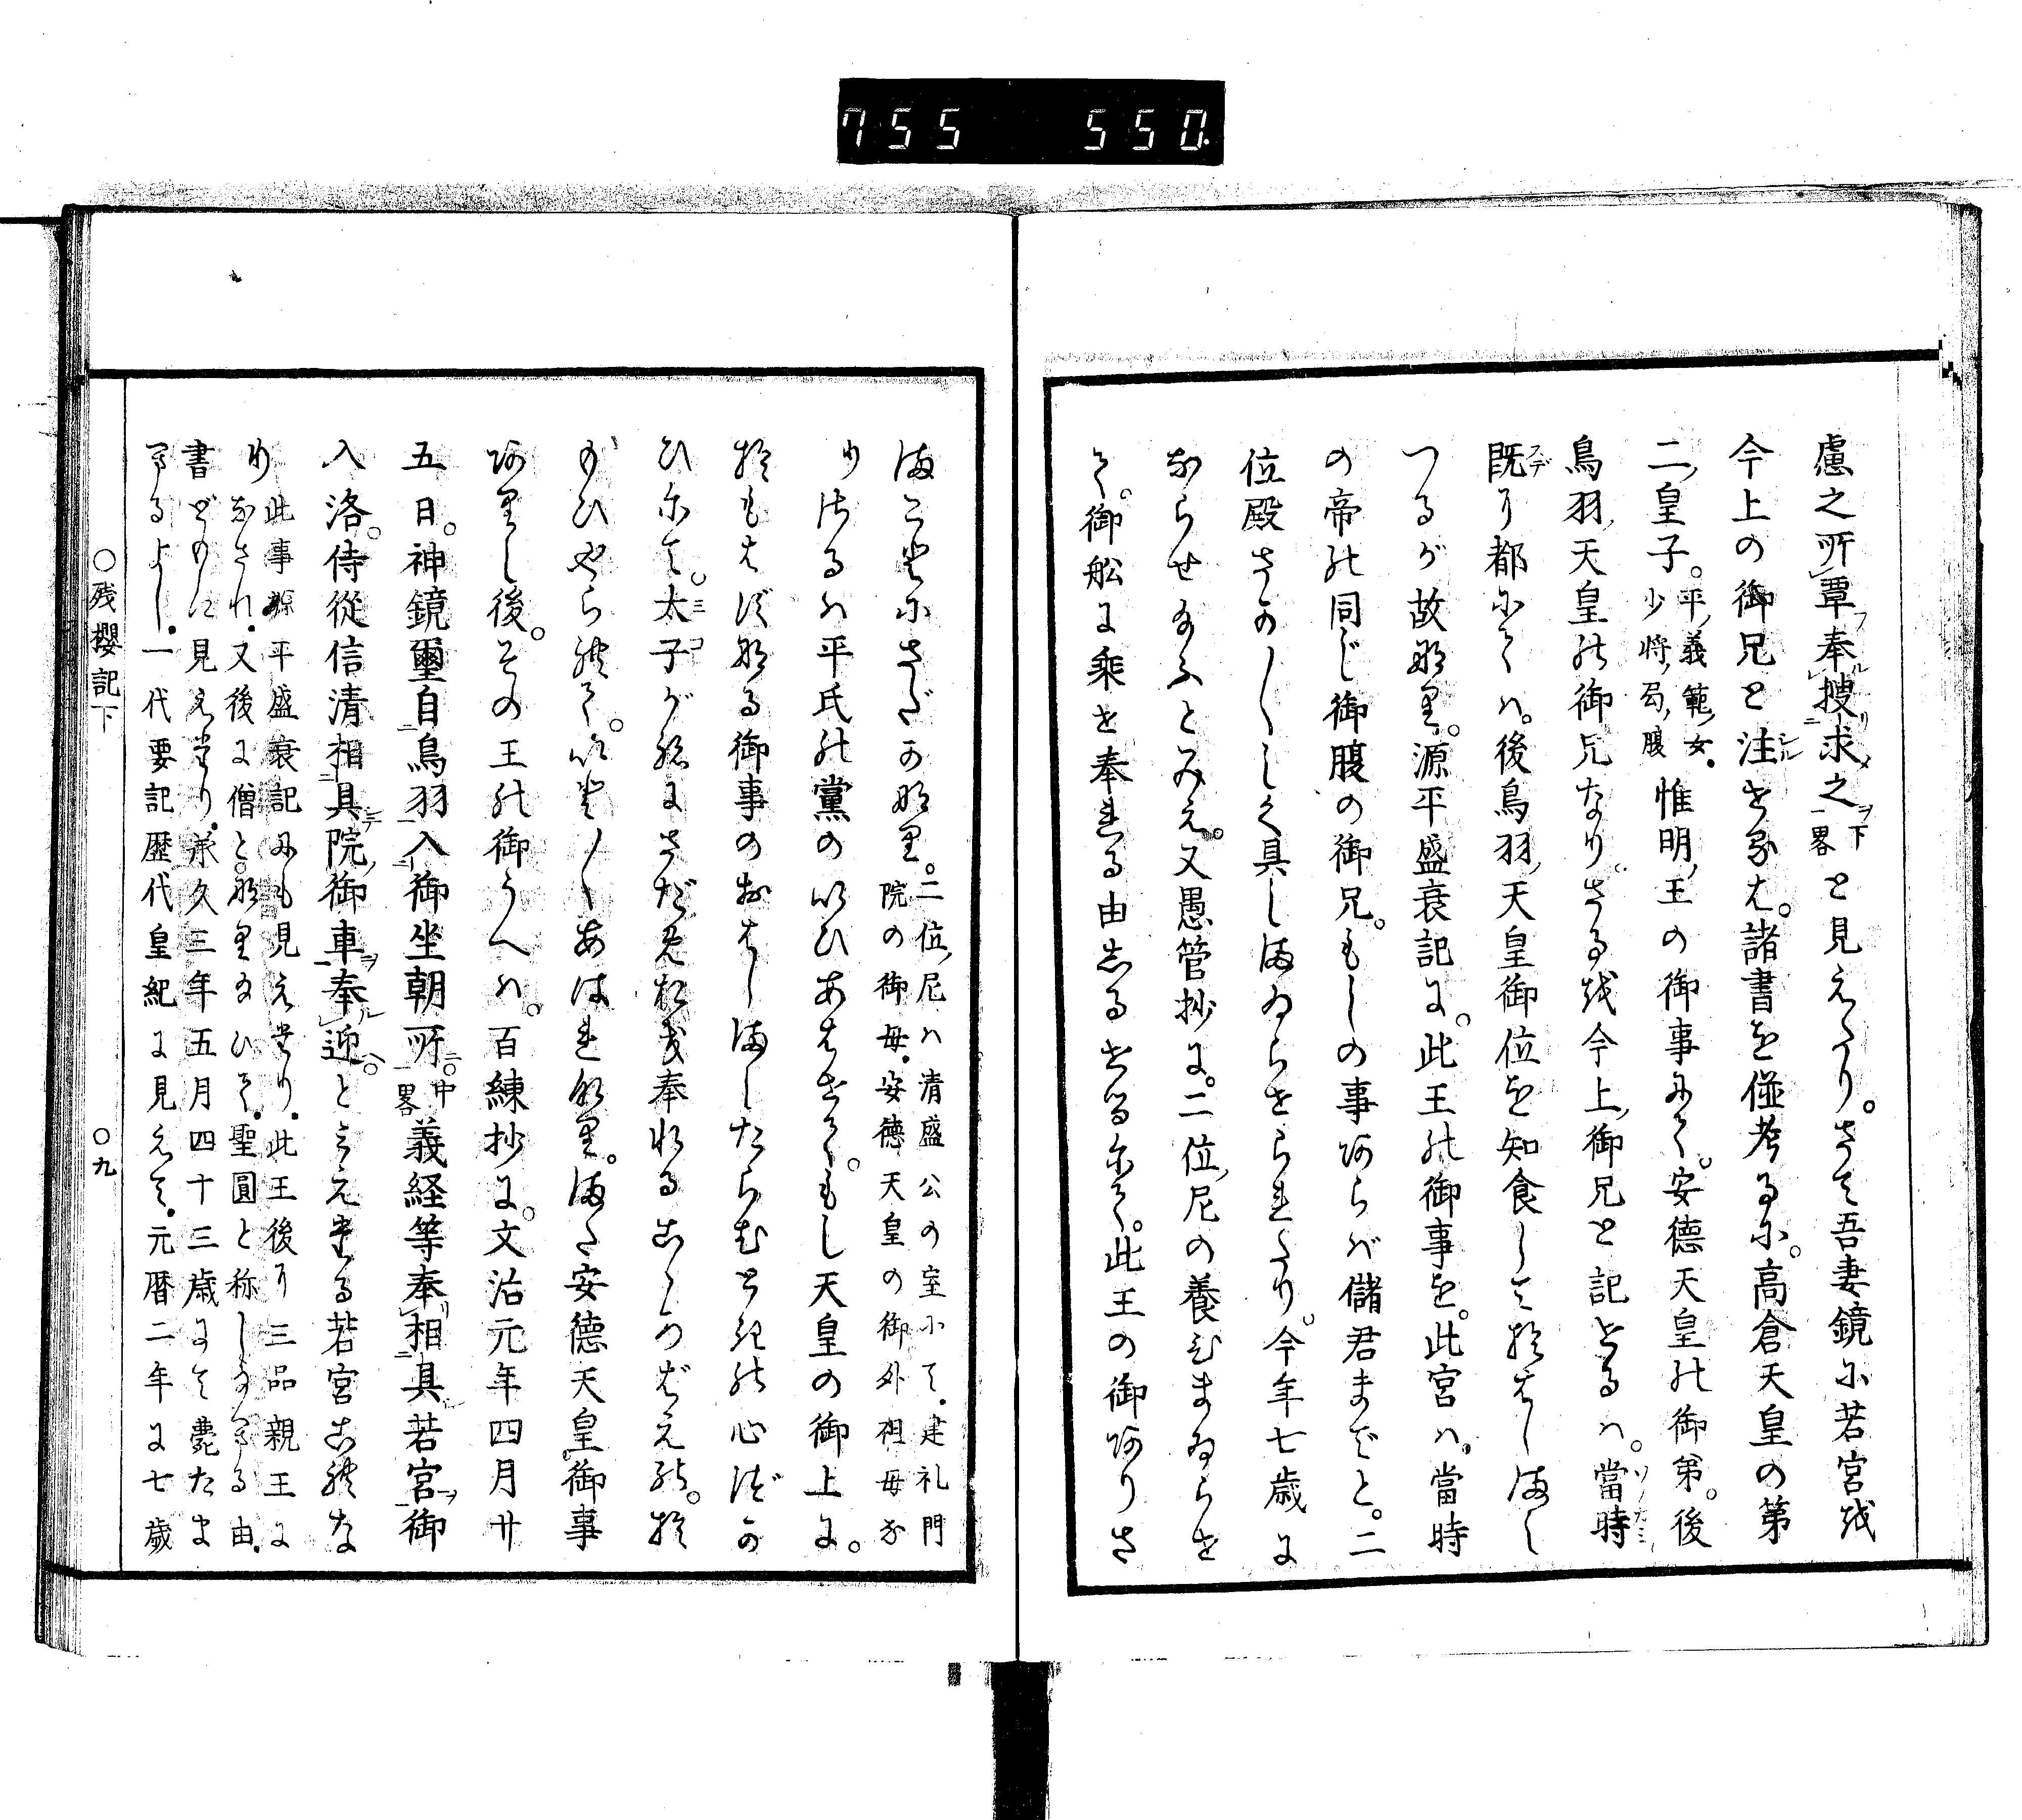 755 550.
慮之所覃奉捜求之下畧と見えたり。さて吾妻鏡に若宮を
今上の御兄と注せるは。諸書を併考るに。高倉天皇の第
二皇子。平義範女。少将局腹惟明王の御事にて。安徳天皇の御弟。後
鳥羽天皇の御兄なり。さるを今上御兄と記せるは。當時
既に都にては。後鳥羽天皇御位を知食しておはしまし
つるが故なり。源平盛衰記に。此王の御事を。此宮は。當時
の帝の同じ御腹の御兄。もしの事あらば儲君までと。二
位殿さか〳〵しく具しまゐらせられたり。今年七歳に
ならせ給ふとみえ。又愚管抄に。二位尼の養ひまゐらせ
て。御舩に乗せ奉れる由しるせるにて。此王の御ありさ
まことにさだかなり。二位尼は清盛公の室にて。建礼門
院の御母。安徳天皇の御外祖母な
りけるは平氏の黨のいひあはせて。もし天皇の御上に。
おもはずなる御事のおはしましたらむときの心づか
ひにて。太子がねにさだめおき奉れるおもむきえぬ。お
五日。神鏡璽自鳥羽入御坐朝所。中畧義経等奉相具若宮御
入洛。侍從信清相具院御車奉迎。とみえたる若宮これな
り此事源平盛衰記にも見えたり。此王後に三品親王に
なされ。又後に僧となり給ひて。聖圓と称しまうせる由。
書どもに見えたり。承久三年五月四十三歳にて薨たま
へるよし。一代要記歴代皇紀に見えて。元暦二年に七歳
○残櫻記下 ○九